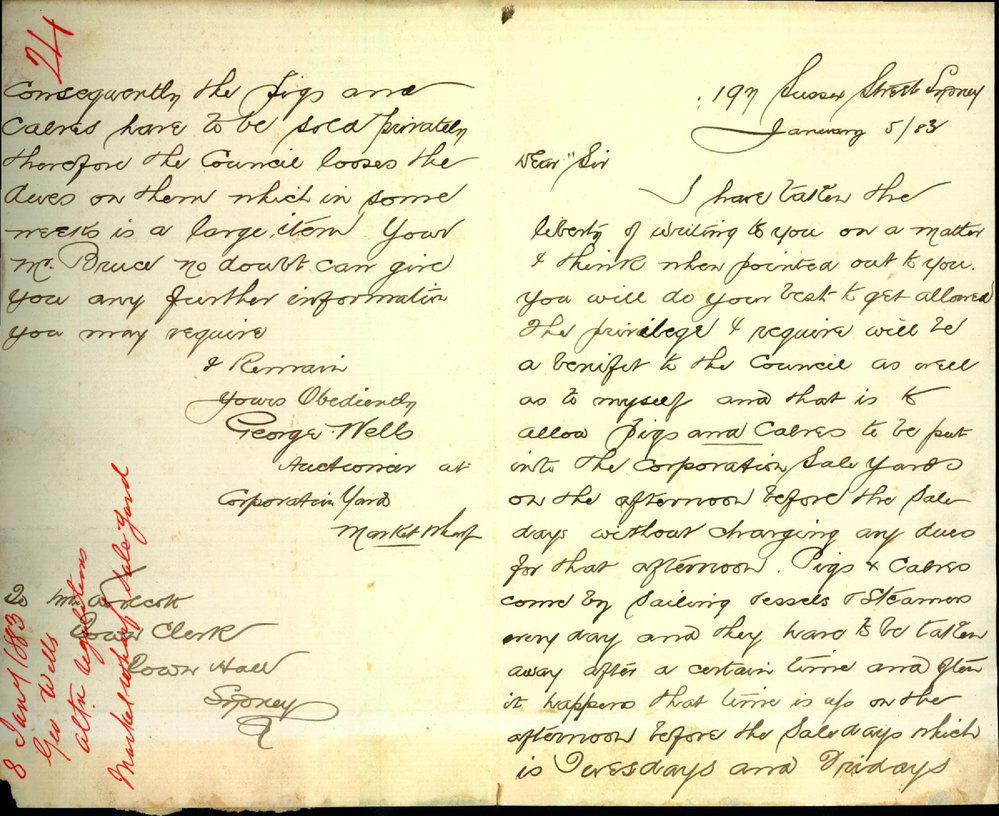 197 Sussex Street Sydney
January 5/83
Dear Sir
I have taken the
liberty of writing to you on a matter
I think when pointed out to you.
you will do your best to get allowed
The privilege I require will be
a benifit to the Council as well
as to myself and that is to
allow Pigs and Calves to be put
into the Corporation Sale Yards
on the afternoon before the Sale
days without charging any dues
for that afternoon. Pigs & Calves
come by Sailing Vessels & Steamers
every day and they have to be taken
away after a certain time and often
it happens that time is up on the
afternoon before the Sale days which
is Tuesdays and Fridays
24
Consequently the Pigs and
Calves have to be sold privately
therefore the Council looses the
dues on them which in some
weeks is a large item. Your
Mr. Bruce no doubt can give
you any further information
you may require
I Remain
Yours Obediently
George Wells
Auctioneer at
Corporation Yard
Market Wharf
To Mr
Town Clerk
Town Hall
Sydney
8 Jany 1883
Geo Wells
alter regulations
Market wharf Sale Yard